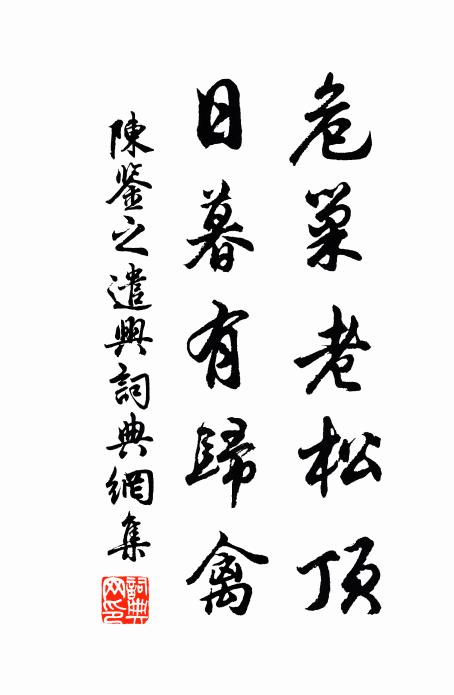 危巢老松頂
日暮有歸禽
陳鉴之遣興詞典網集
詞典網印